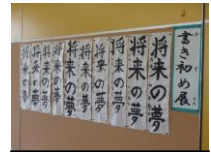 書き初め展
将来の夢
将来の夢
将来の夢
将来の夢
将来の夢
将来の夢
将来の夢
将来の夢
将来の夢